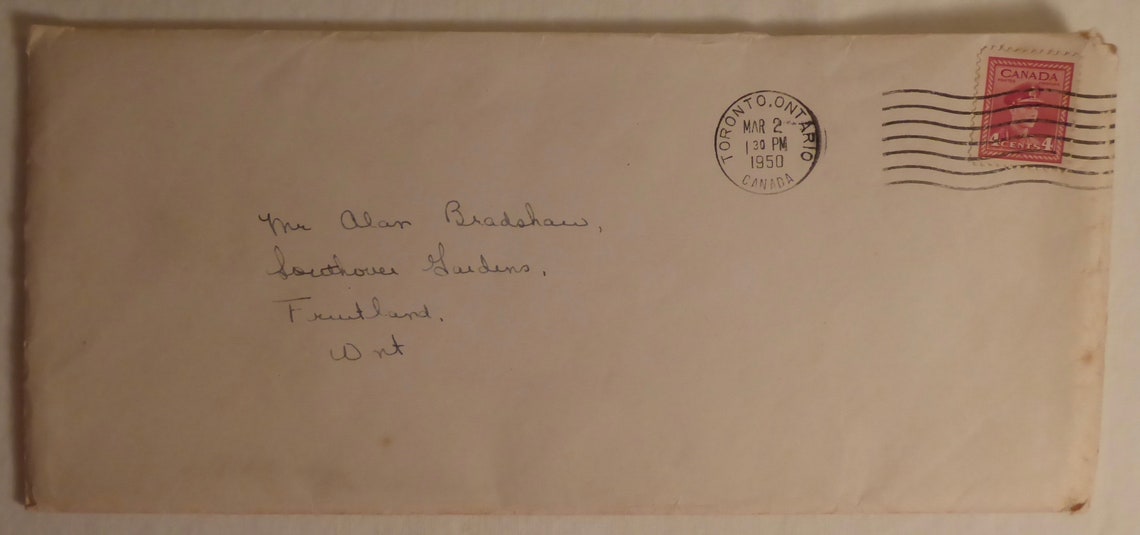 TORONTO, ONTARIO
MAR 2
1 30 PM
1950
CANADA
CANADA
4 CENTS 4
Mr Alan Bradshaw,
Southover Gardens,
Fruitland,
Ont